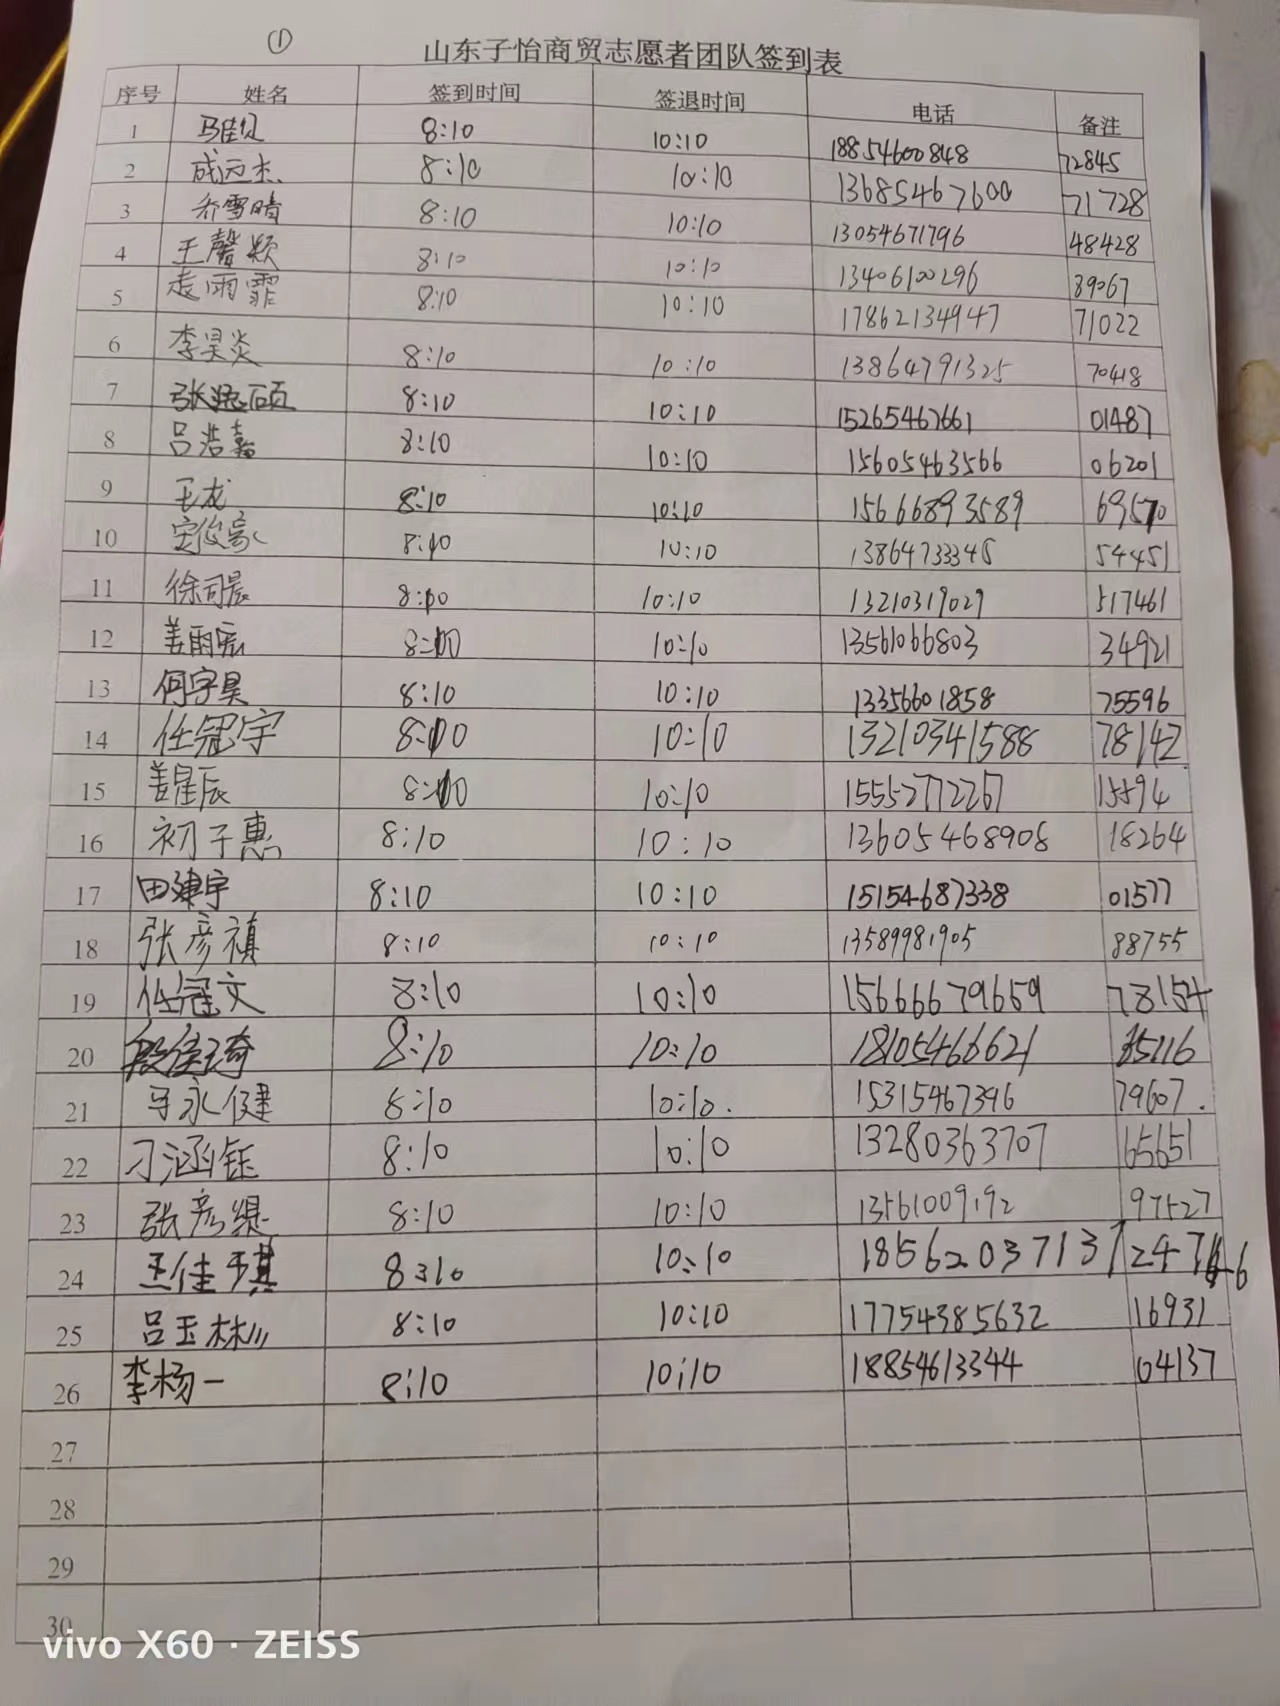 ①
山东子怡商贸志愿者团队签到表
序号 姓名 签到时间 签退时间 电话 备注
1 8:10 10:10 18854600848 72845
2 8:10 10:10 13685467600 71728
3 乔雪晴 8:10 10:10 13054671796 48428
4 王馨颖 8:10 10:10 13406100296 39067
5 8:10 10:10 17862134947 71022
6 李昊炎 8:10 10:10 13864791325 70418
7 8:10 10:10 15265467661 01487
8 吕浩嘉 8:10 10:10 15605463566 06201
9 王龙 8:10 10:10 15666893589
10 8:10 10:10 54451
11 徐司晨 8:10 10:10 13210319029 517461
12 8:10 10:10 13561066803 34921
13 何宇昊 8:10 10:10 13356601858 75596
14 任冠宇 8:10 10:10 13210341588 78142
15 姜星辰 8:10 10:10 15552772267 15594
16 初子惠 8:10 10:10 13605468908 18264
17 田建宇 8:10 10:10 15154687338 01577
18 张彦禛 8:10 10:10 13589981905 88755
19 任冠文 8:10 10:10 15666679659 78154
20 8:10 10:10 18105466621
21 马永健 8:10 10:10. 15315467396 79607.
22 刁涵钰 8:10 10:10 13280363707 65651
23 8:10 10:10 13561009192 97527
24 王佳琪 8:10 10:10 18562037137
25 吕玉林 8:10 10:10 17754385632 16931
26 李杨一 8:10 10:10 18854613344 04137
27
28
29
30
vivo X60 · ZEISS